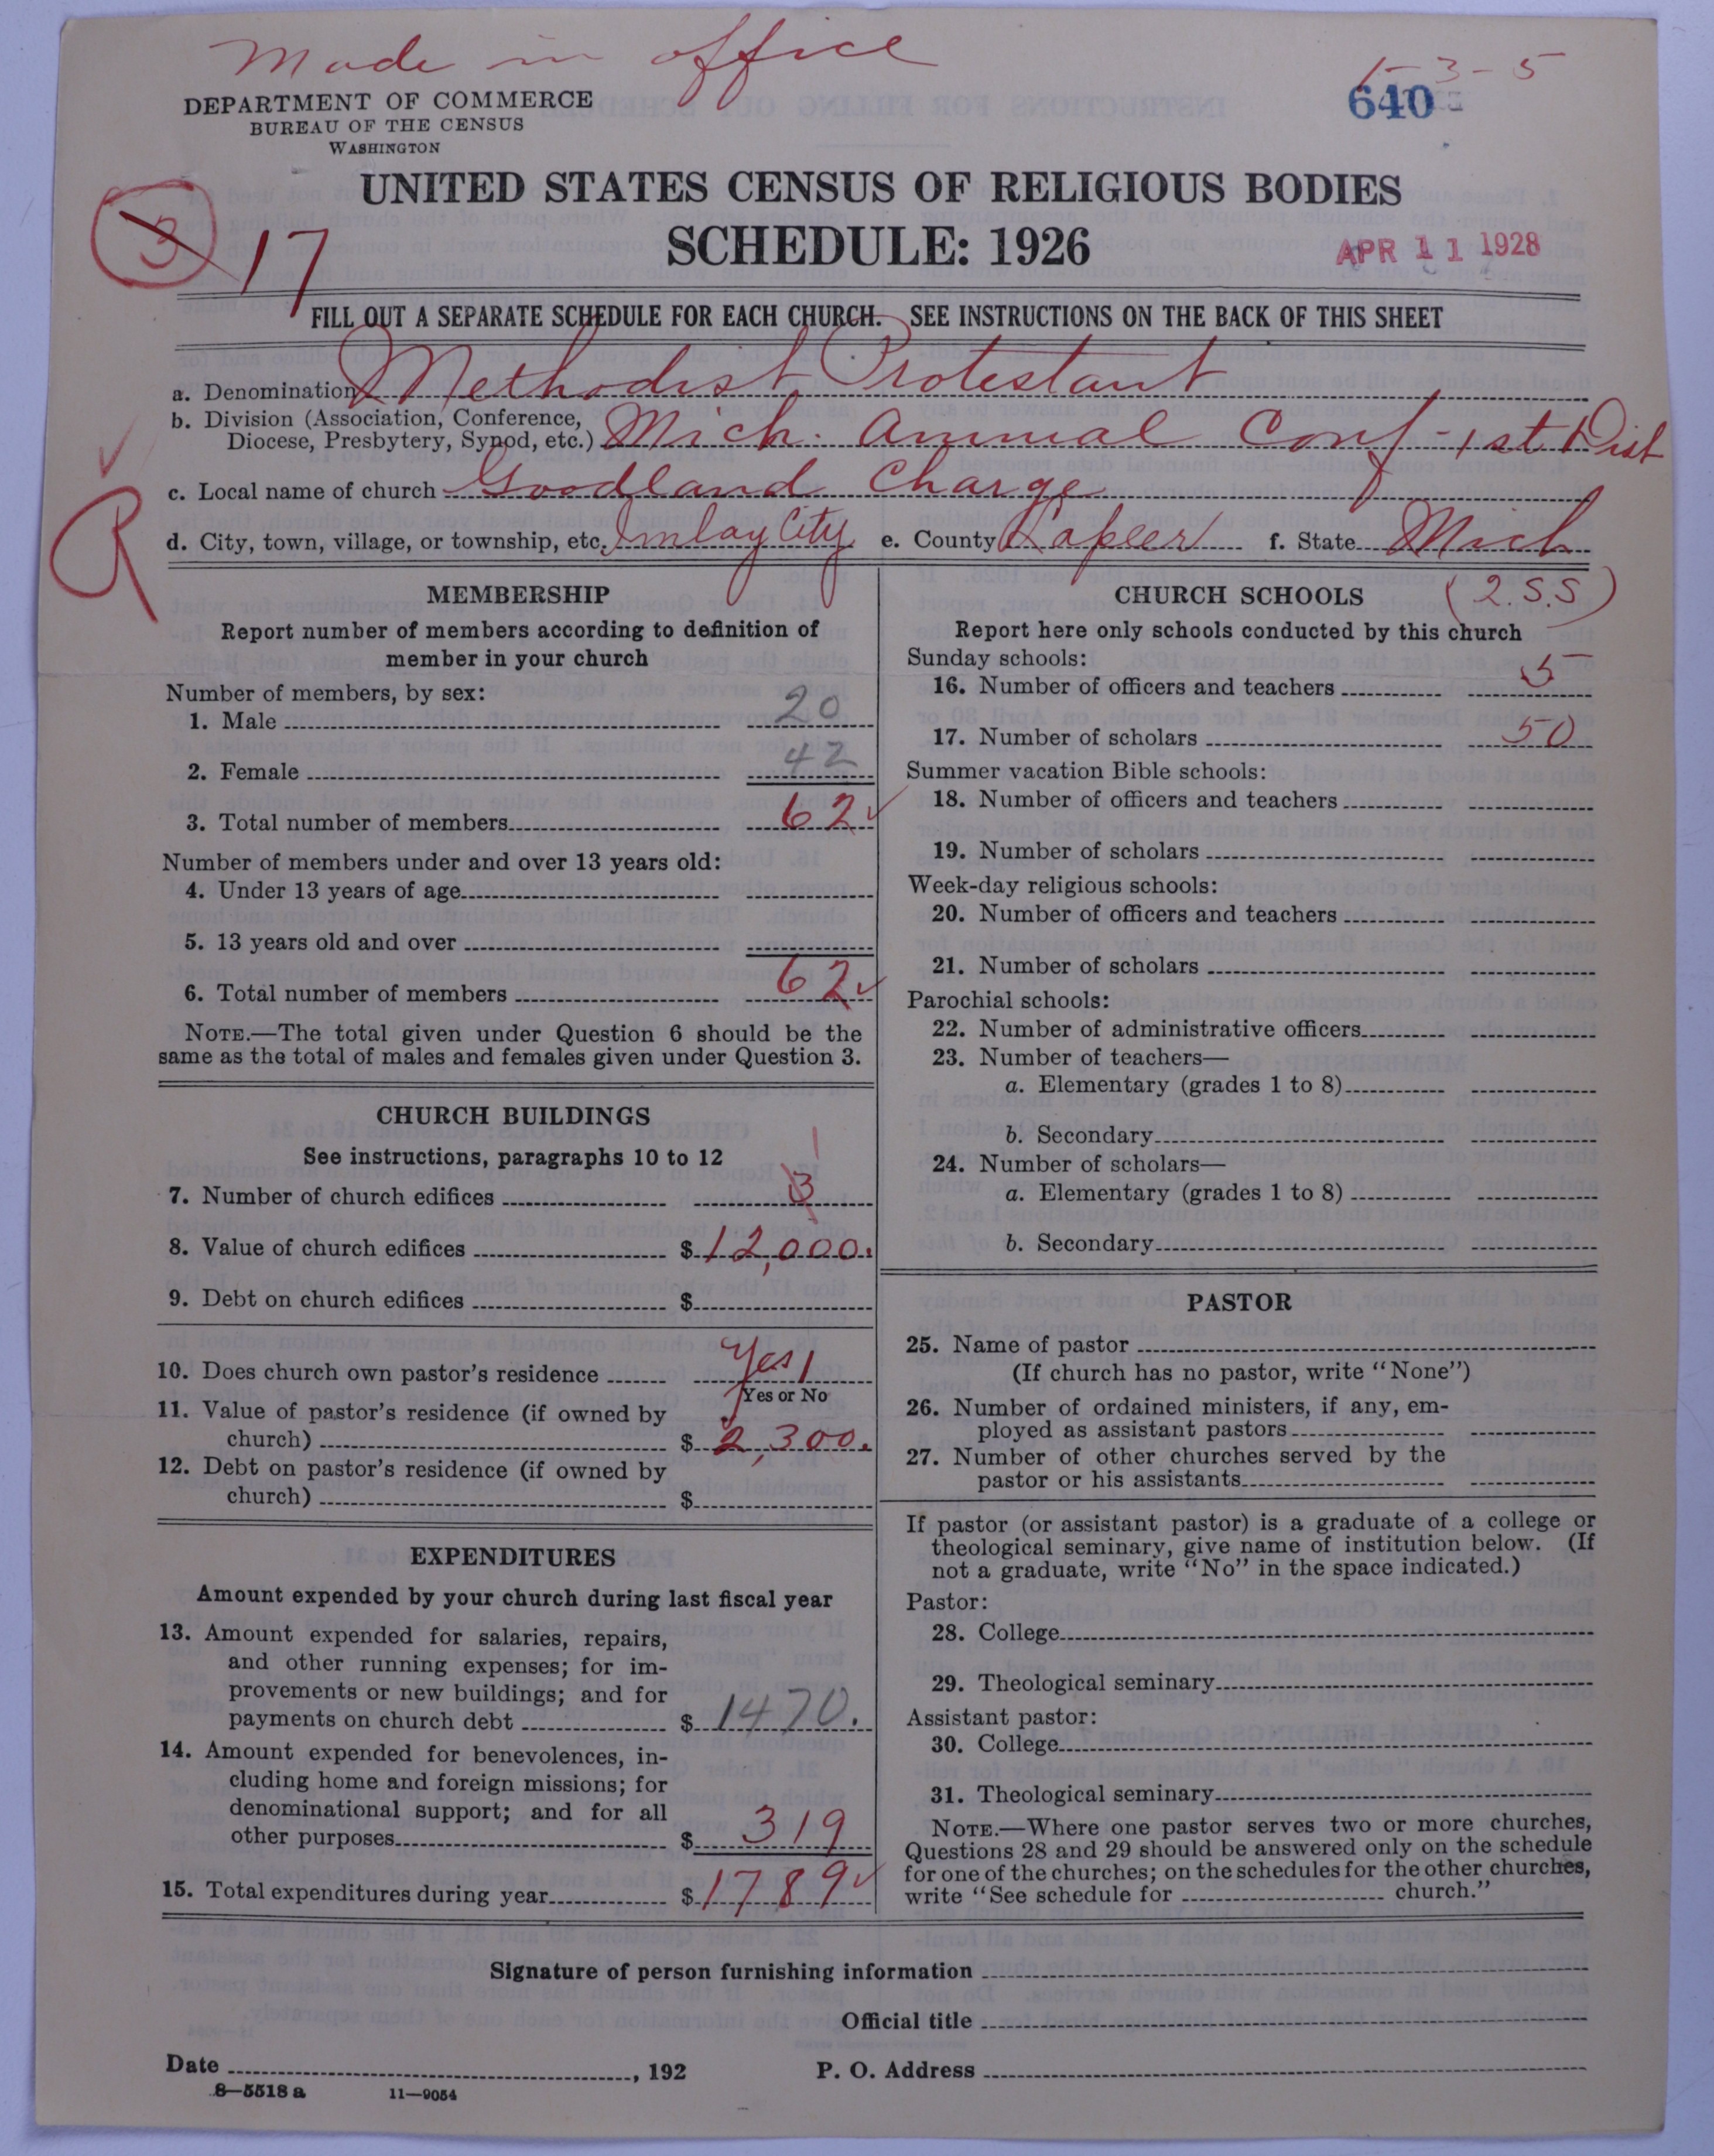 Made in office
1-3-5
640
DEPARTMENT OF COMMERCE
BUREAU OF THE CENSUS
WASHINGTON
UNITED STATES CENSUS OF RELIGIOUS BODIES
SCHEDULE: 1926
3 17
APR 11 1928
FILL OUT A SEPARATE SCHEDULE FOR EACH CHURCH. SEE INSTRUCTIONS ON THE BACK OF THIS SHEET
a. Denomination Methodist Protestant
b. Division (Association, Conference,
Diocese, Presbytery, Synod, etc.) Mich. Annual Conf - 1st Dist
c. Local name of church Goodland Charge
d. City, town, village, or township, etc. Imlay City e. County Lapeer f. State Mich
R
MEMBERSHIP
Report number of members according to definition of
member in your church
Number of members, by sex:
1. Male 20
2. Female 42
3. Total number of members 62
Number of members under and over 13 years old:
4. Under 13 years of age
5. 13 years old and over
6. Total number of members 62
NOTE.—The total given under Question 6 should be the
same as the total of males and females given under Question 3.
CHURCH BUILDINGS
See instructions, paragraphs 10 to 12
1
7. Number of church edifices 3
8. Value of church edifices $ 12,000.
9. Debt on church edifices $
10. Does church own pastor's residence Yes 1
Yes or No
11. Value of pastor's residence (if owned by
church) $ 2,300.
12. Debt on pastor's residence (if owned by
church) $
EXPENDITURES
Amount expended by your church during last fiscal year
13. Amount expended for salaries, repairs,
and other running expenses; for im-
provements or new buildings; and for
payments on church debt $ 1470.
14. Amount expended for benevolences, in-
cluding home and foreign missions; for
denominational support; and for all
other purposes $ 319
15. Total expenditures during year $ 1789
CHURCH SCHOOLS (2.S.S)
Report here only schools conducted by this church
Sunday schools:
16. Number of officers and teachers 5
17. Number of scholars 50
Summer vacation Bible schools:
18. Number of officers and teachers
19. Number of scholars
Week-day religious schools:
20. Number of officers and teachers
21. Number of scholars
Parochial schools:
22. Number of administrative officers
23. Number of teachers—
a. Elementary (grades 1 to 8)
b. Secondary
24. Number of scholars—
a. Elementary (grades 1 to 8)
b. Secondary
PASTOR
25. Name of pastor
(If church has no pastor, write "None")
26. Number of ordained ministers, if any, em-
ployed as assistant pastors
27. Number of other churches served by the
pastor or his assistants
If pastor (or assistant pastor) is a graduate of a college or
theological seminary, give name of institution below. (If
not a graduate, write "No" in the space indicated.)
Pastor:
28. College
29. Theological seminary
Assistant pastor:
30. College
31. Theological seminary
NOTE.—Where one pastor serves two or more churches,
Questions 28 and 29 should be answered only on the schedule
for one of the churches; on the schedules for the other churches,
write "See schedule for church."
Signature of person furnishing information
Official title
Date , 192 P. O. Address
8—5518 a 11—9054